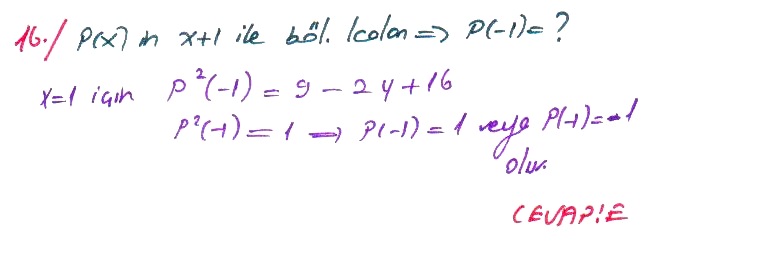 16./ P(x) in x+1 ile böl. kalan => P(-1)= ?
x=1 için P²(-1) = 9 - 24+16
P²(-1) = 1 => P(-1) = 1 veya P(-1)=-1
olur.
CEVAP:E